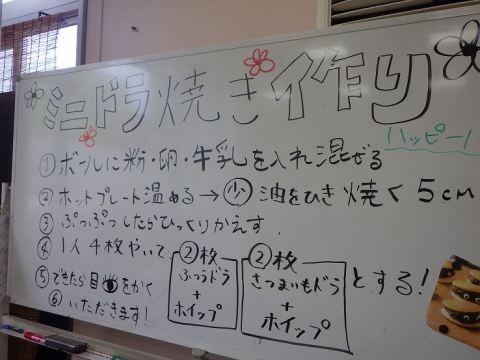 ミニドラ焼き作り
ハッピー!
①ボールに粉・卵・牛乳を入れ混ぜる
②ホットプレート温める→少 油をひき 焼く 5cm
③ぷつぷつしたらひっくりかえす.
④1人4枚やいて
②枚
ふつうドラ
+
ホイップ
②枚
さつまいもドラ
+
ホイップ
とする!
⑤できたら目をかく
⑥いただきます!